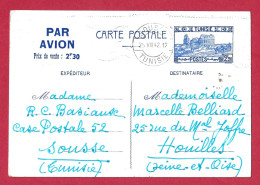 PAR
AVION
Prix de vente : 2f30
CARTE POSTALE
TUNISIE
POSTES
EXPÉDITEUR
DESTINATAIRE
Madame
R. C. Basiaux
Case Postale 52
Sousse
(Tunisie)
Mademoiselle
Marcelle Belliard
25 rue du Mal Joffre
Houilles
(Seine-et-Oise)